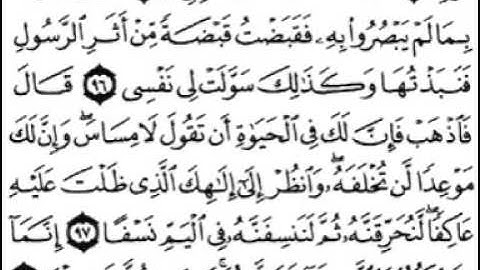 بِمَا لَمْ يَبْصُرُوا۟ بِهِۦ فَقَبَضْتُ قَبْضَةً مِّنْ أَثَرِ ٱلرَّسُولِ
فَنَبَذْتُهَا وَكَذَٰلِكَ سَوَّلَتْ لِى نَفْسِى ٩٦ قَالَ
فَٱذْهَبْ فَإِنَّ لَكَ فِى ٱلْحَيَوٰةِ أَن تَقُولَ لَا مِسَاسَ ۖ وَإِنَّ لَكَ
مَوْعِدًا لَّن تُخْلَفَهُۥ ۖ وَٱنظُرْ إِلَىٰٓ إِلَٰهِكَ ٱلَّذِى ظَلْتَ عَلَيْهِ
عَاكِفًا ۖ لَّنُحَرِّقَنَّهُۥ ثُمَّ لَنَنسِفَنَّهُۥ فِى ٱلْيَمِّ نَسْفًا ٩٧ إِنَّمَآ